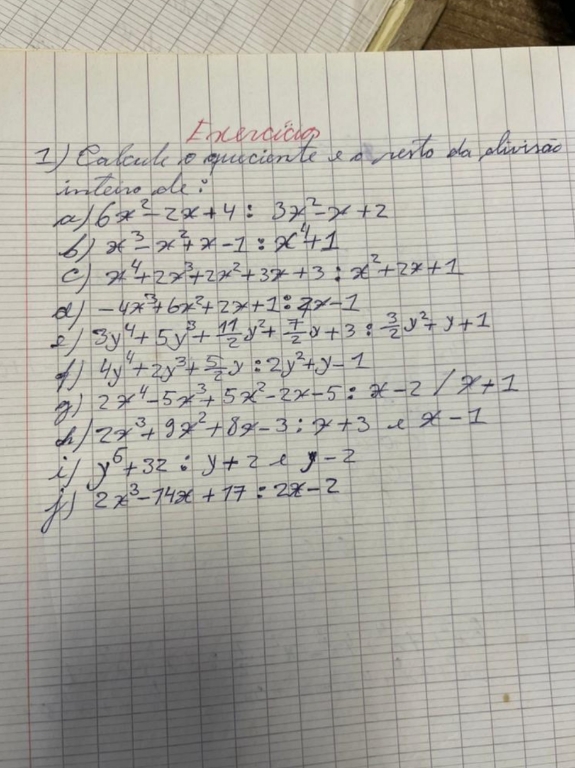 Exercícios
1) Calcule o quociente e o resto da divisão
inteiro de:
a) 6x²-2x+4 : 3x²-x+2
b) x³-x²+x-1 : x⁴+1
c) x⁴+2x³+2x²+3x+3 : x²+2x+1
d) -4x³+6x²+2x+1 : 2x-1
e) 3y⁴+5y³+11/2y²+7/2y+3 : 3/2y²+y+1
f) 4y⁴+2y³+5/2y : 2y²+y-1
g) 2x⁴-5x³+5x²-2x-5 : x-2 / x+1
h) 2x³+9x²+8x-3 : x+3 e x-1
i) y⁵+32 : y+2 e y-2
j) 2x³-14x+17 : 2x-2